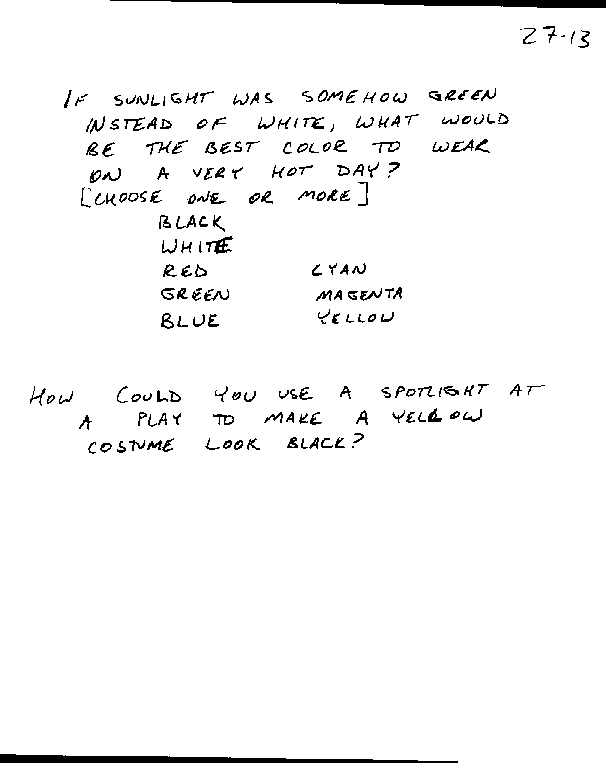 27-13
IF SUNLIGHT WAS SOMEHOW GREEN
INSTEAD OF WHITE, WHAT WOULD
BE THE BEST COLOR TO WEAR
ON A VERY HOT DAY?
[CHOOSE ONE OR MORE]
BLACK
WHITE
RED CYAN
GREEN MAGENTA
BLUE YELLOW
HOW COULD YOU USE A SPOTLIGHT AT
A PLAY TO MAKE A YELLOW
COSTUME LOOK BLACK?